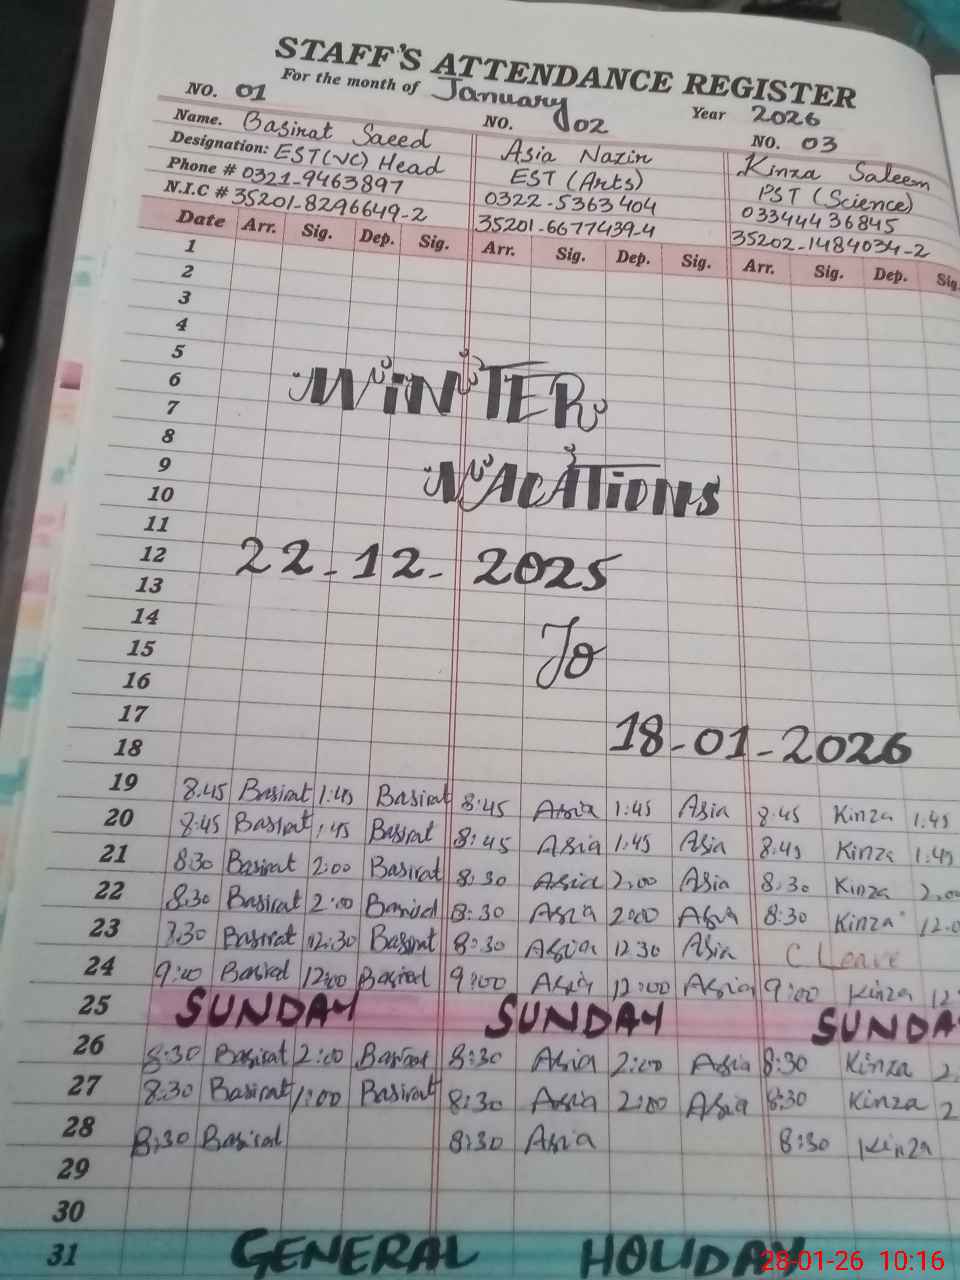 STAFF'S ATTENDANCE REGISTER
For the month of January Year 2026
NO. 01 NO. 02 NO. 03
Name. Basirat Saeed Asia Nazir Kinza Saleem
Designation: EST(VC) Head EST (Arts) PST (Science)
Phone # 0321-9463897 0322-5363404 03344436845
N.I.C # 35201-8296649-2 35201-6677439-4 35202-1484034-2
Date Arr. Sig. Dep. Sig. Arr. Sig. Dep. Sig. Arr. Sig. Dep. Sig.
1
2
3
4
5
6 WINTER
7
8
9
10 VACATIONS
11
12 22-12-2025
13
14
15 To
16
17
18 18-01-2026
19 8:45 Basirat 1:45 Basirat 8:45 Asia 1:45 Asia 8:45 Kinza 1:45
20 8:45 Basirat 1:45 Basirat 8:45 Asia 1:45 Asia 8:45 Kinza 1:45
21 8:30 Basirat 2:00 Basirat 8:30 Asia 2:00 Asia 8:30 Kinza 2:00
22 8:30 Basirat 2:00 Basirat 8:30 Asia 2:00 Asia 8:30 Kinza
23 Basirat 12:30 Basirat 8:30 Asia 12:30 Asia C Leave
24 9:00 Basirat 12:00 Basirat 9:00 Asia 12:00 Asia 9:00 Kinza 12
25 SUNDAY SUNDAY SUNDA
26 8:30 Basirat 2:00 Basirat 8:30 Asia 2:00 Asia 8:30 Kinza 2
27 8:30 Basirat 1:00 Basirat 8:30 Asia 2:00 Asia 8:30 Kinza 2
28 8:30 Basirat 8:30 Asia 8:30 Kinza
29
30
31 GENERAL HOLIDAY
28-01-26 10:16